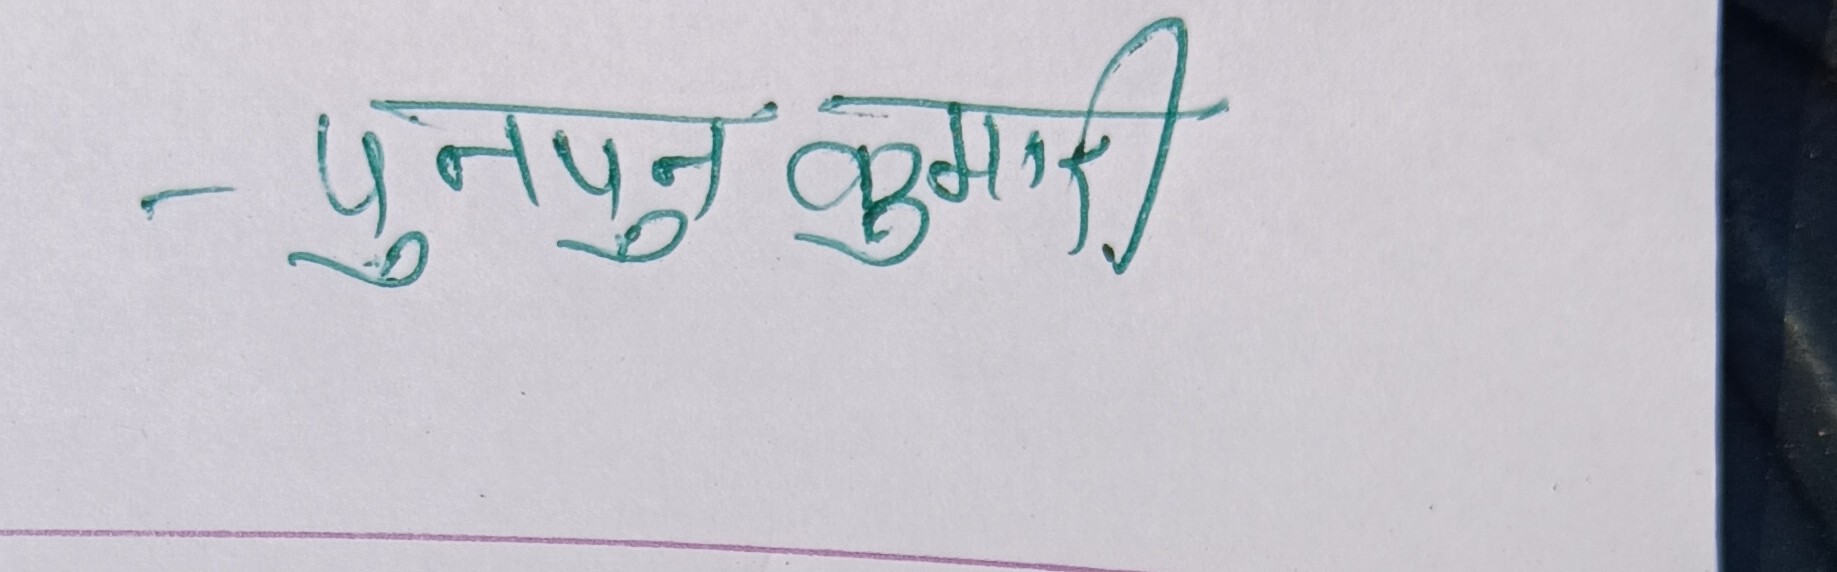 - पुनपुन कुमारी